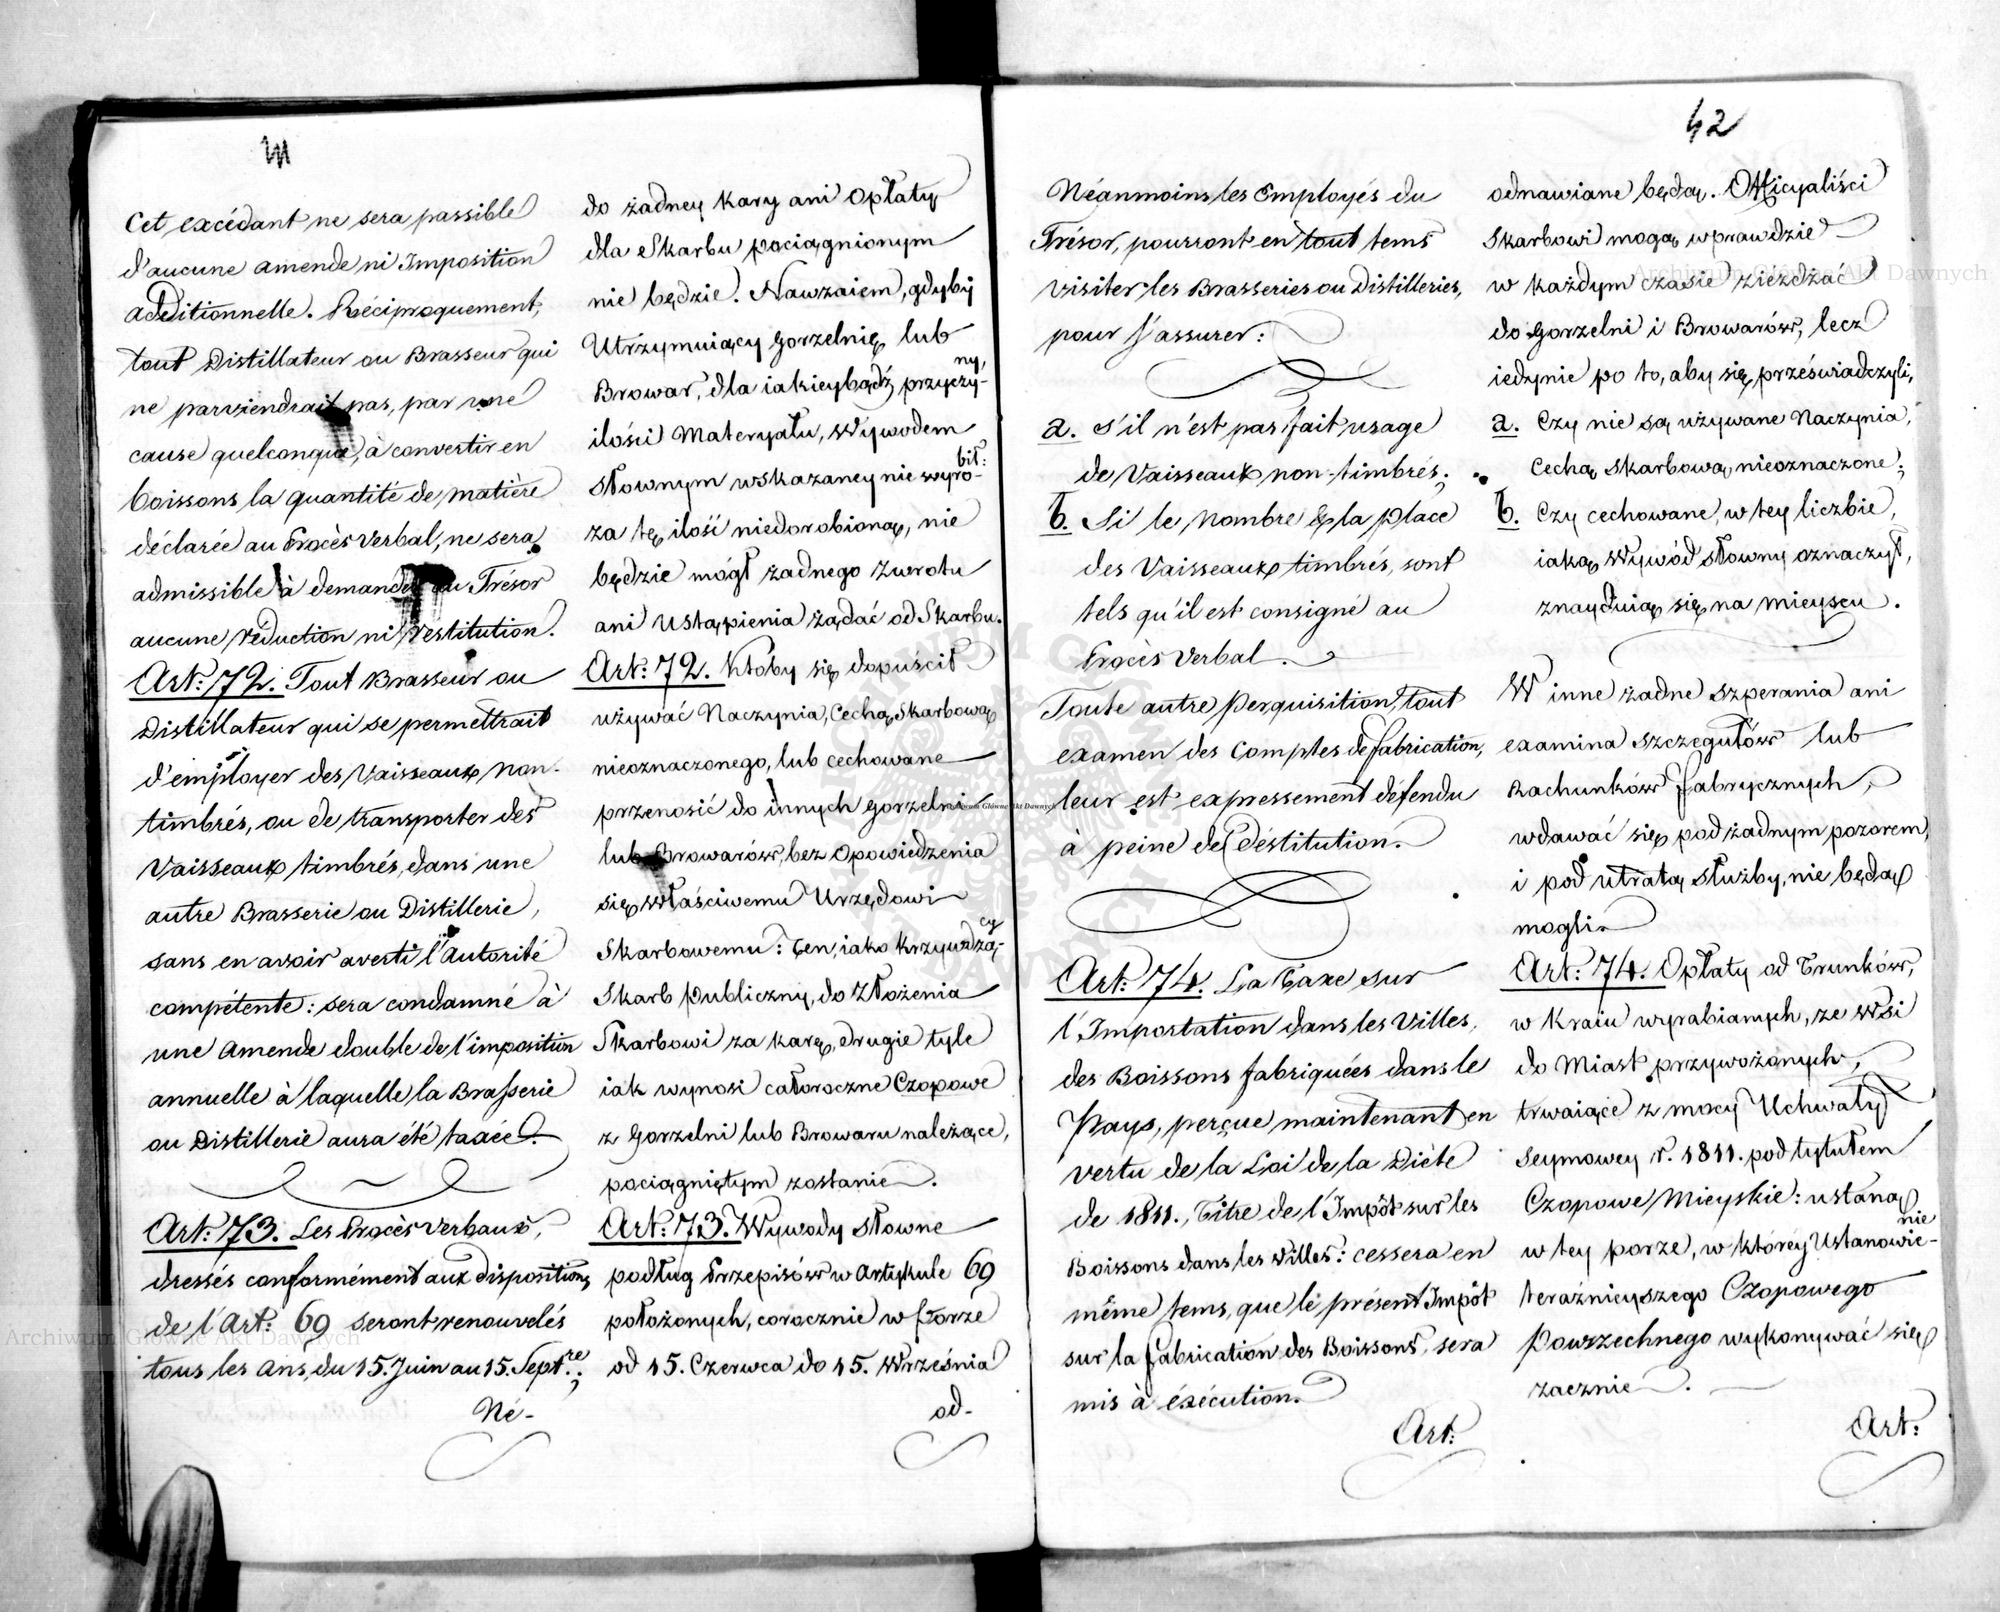 Cet excédant ne sera passible
d'aucune amende ni Imposition
additionnelle. Réciproquement,
tout Distillateur ou Brasseur qui
ne parviendrait pas, par une
cause quelconque, à convertir en
boissons la quantité de matière
déclarée au Procès Verbal, ne sera
admissible à demander au Trésor
aucune réduction ni restitution.
Art: 72. Tout Brasseur ou
Distillateur qui se permettrait
d'employer des Vaisseaux non-
timbrés, ou de transporter des
Vaisseaux timbrés, dans une
autre Brasserie ou Distillerie,
sans en avoir averti l'Autorité
compétente: sera condamné à
une Amende double de l'imposition
annuelle à laquelle la Brasserie
ou Distillerie aura été taxée.
Art: 73. Les Procès Verbaux,
dressés conformément aux dispositions
de l'Art: 69 seront renouvelés
tous les Ans, du 15. Juin au 15. Septre;
Né-
do żadney kary ani Opłaty
dla Skarbu pociągnionym
nie będzie. Nawzaiem, gdyby
Utrzymuiący Gorzelnię lub
Browar, dla iakieybądź przyczyny,
ilości Materyału, Wywodem
słownym wskazaney nie wyrobił:
za tę ilość niedorobioną, nie
będzie mógł żadnego zwrotu
ani Ustąpienia żądać od Skarbu.
Art: 72. Ktoby się dopuścił
używać Naczynia, Cechą Skarbową
nieoznaczonego, lub cechowane
przenosić do innych Gorzelni
lub Browarów, bez Opowiedzenia
się właściwemu Urzędowi
Skarbowemu: Ten, iako krzywdzący
Skarb Publiczny, do złożenia
Skarbowi za karę, drugie tyle
iak wynosi całoroczne Czopowe
z Gorzelni lub Browaru należące,
pociągniętym zostanie.
Art: 73. Wywody słowne
podług Przepisów w Artykule 69
położonych, corocznie w Porze
od 15. Czerwca do 15. Września
od-
42
Néanmoins les Employés du
Trésor, pourront en tout tems
visiter les Brasseries ou Distilleries,
pour s'assurer:
a. S'il n'est pas fait usage
de Vaisseaux non-timbrés;
b. Si le Nombre & la place
des Vaisseaux timbrés, sont
tels qu'il est consigné au
Procès Verbal.
Toute autre Perquisition, tout
examen des Comptes de fabrication,
leur est expressement défendu
à peine de déstitution.
Art: 74. La Taxe sur
l'Importation dans les Villes,
des Boissons fabriquées dans le
Pays, perçue maintenant en
vertu de la Loi de la Diète
de 1811., Titre de l'Impôt sur les
Boissons dans les Villes: cessera en
même tems, que le présent Impôt
sur la fabrication des Boissons, sera
mis à éxécution.
Art:
odnawiane będą. Officyaliści
Skarbowi mogą wprawdzie
w każdym czasie zieżdżać
do Gorzelni i Browarów, lecz
iedynie po to, aby się przeświadczyli,
a. Czy nie są używane Naczynia,
Cechą Skarbową nieoznaczone;
b. Czy cechowane, w tey liczbie,
iaką Wywód słowny oznaczył,
znayduią się na mieyscu.
W inne żadne szperania ani
examina szczegułów lub
Rachunków fabrycznych,
wdawać się pod żadnym pozorem,
i pod utratą służby, nie będą
mogli.
Art: 74. Opłaty od Trunków,
w Kraiu wyrabianych, ze Wsi
do Miast przywożonych,
trwaiące z mocy Uchwały
Seymowey r. 1811. pod tytułem
Czopowe Mieyskie: ustaną
w tey porze, w którey Ustanowienie
teraźnieyszego Czopowego
Powszechnego wykonywać się
zacznie.
Art:
Archiwum Główne Akt Dawnych
Archiwum Główne Akt Dawnych
Archiwum Główne Akt Dawnych